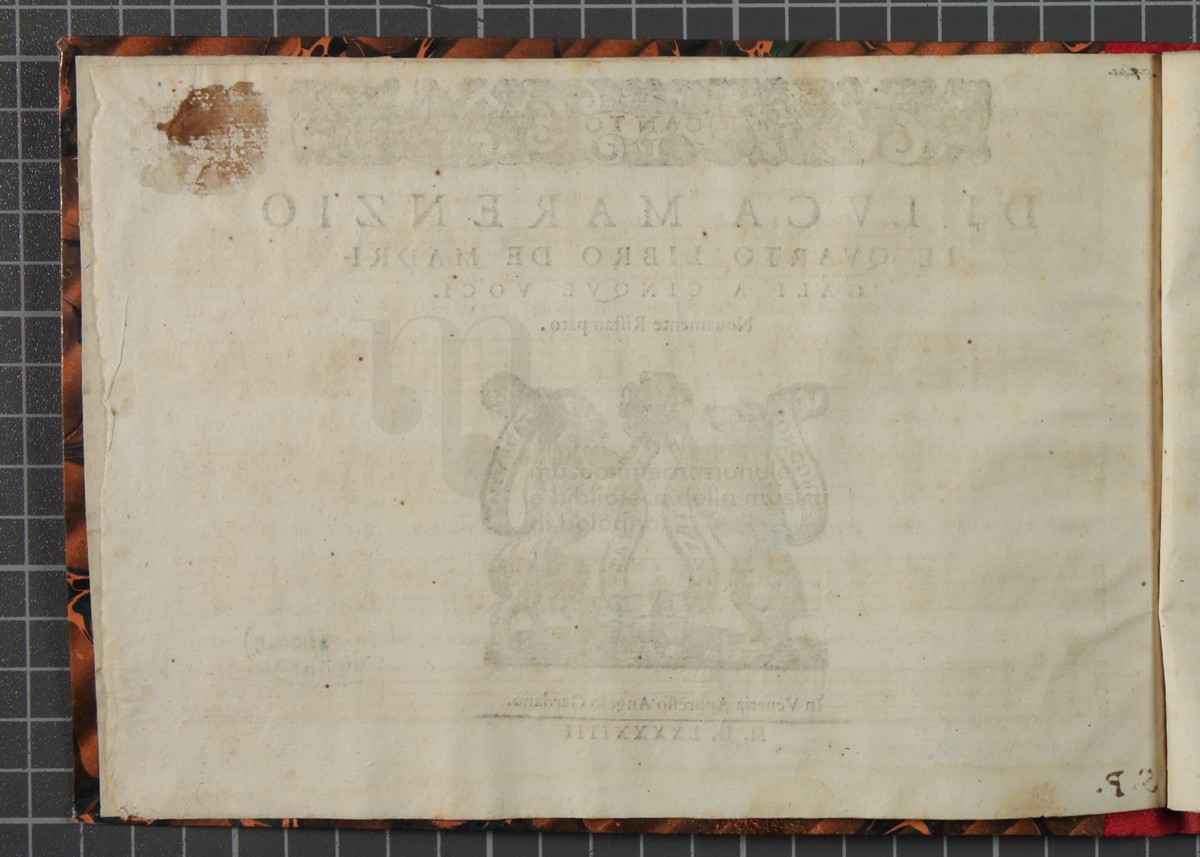 CANTO
DI LVCA MARENZIO
IL QVARTO LIBRO DE MADRI-
GALI A CINQVE VOCI.
Nouamente Ristampato.
museo internazionale
e biblioteca della musica
di bologna
In Venetia Appresso Angelo Gardano.
M. D. LXXXXIIII
S. P.